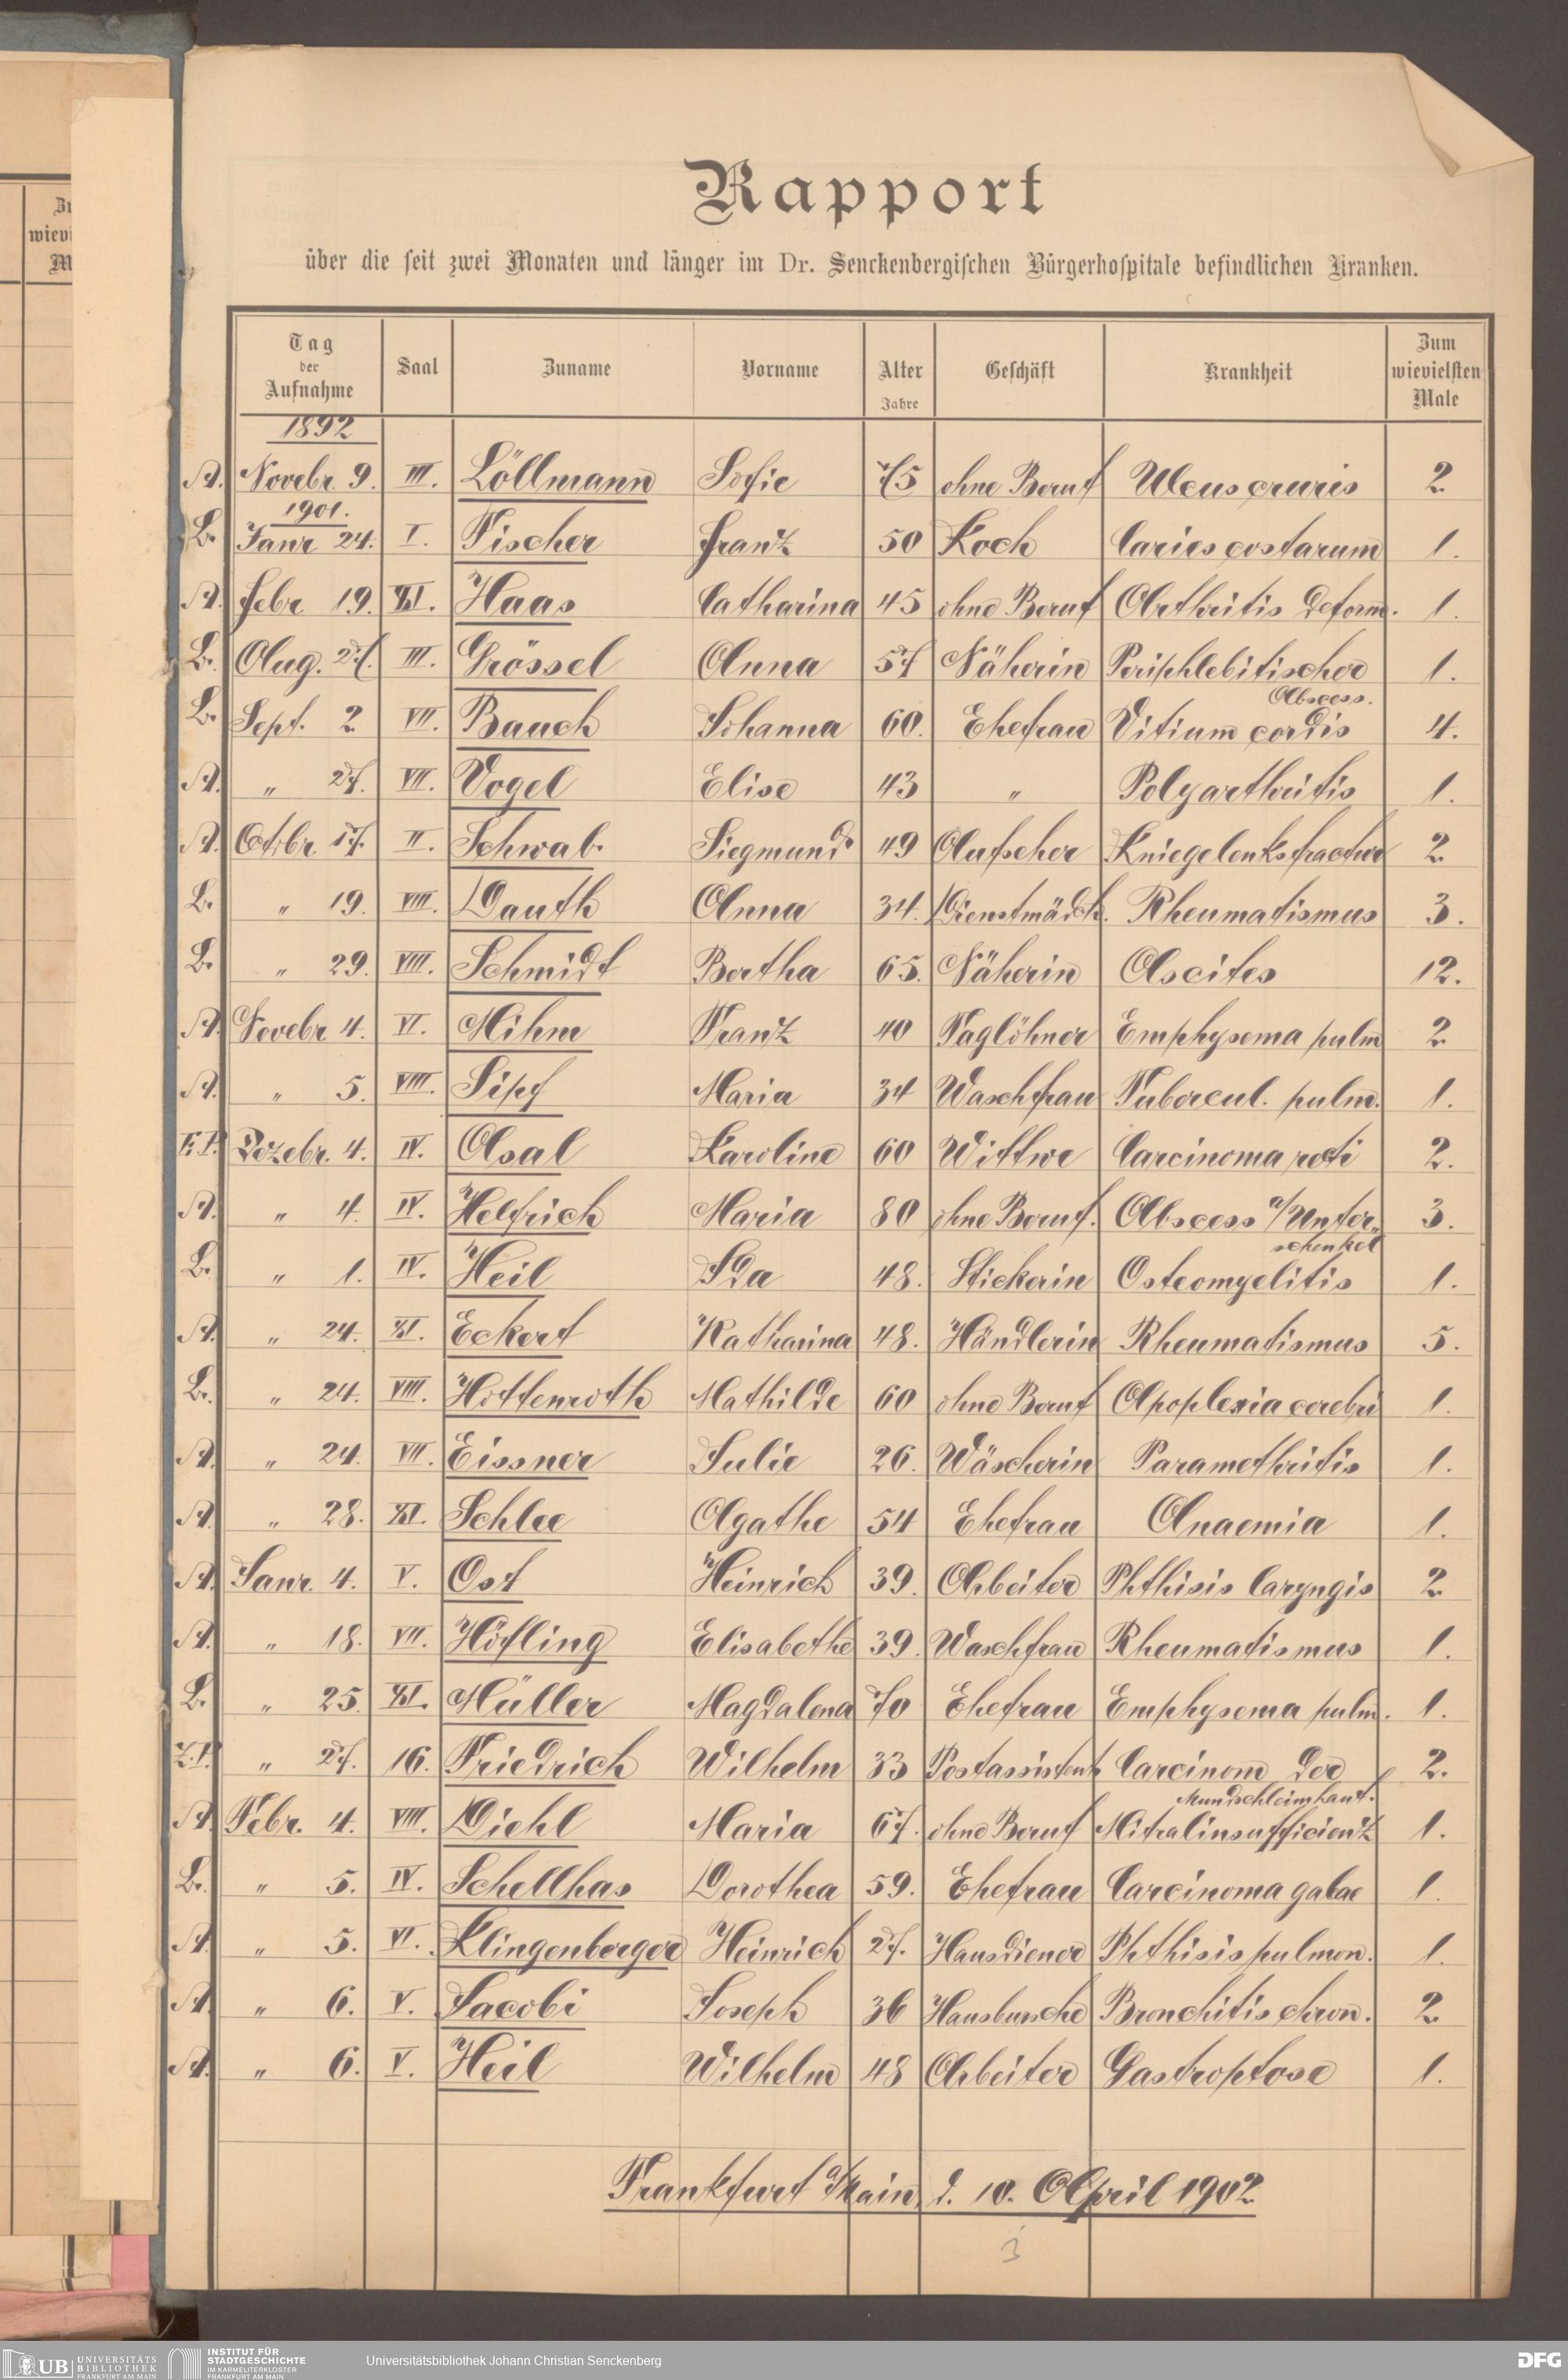 Zu
wievi
M
Rapport
über die seit zwei Monaten und länger im Dr. Senckenbergischen Bürgerhospitale befindlichen Kranken.
Tag der Aufnahme Saal Zuname Vorname Alter Jahre Geschäft Krankheit Zum wievielsten Male
1892
A. Novebr. 9. III. Löllmann Sofie 75 ohne Beruf Ulcus cruris 2
1901.
B. Janr 24. I. Fischer Franz 50 Koch Caries costarum 1.
A. Febr 19. XI. Haas Catharina 45 ohne Beruf Arthritis deform. 1.
B. Aug. 27. III. Grössel Anna 57 Näherin Periphlebitischer 1.
Abscess.
B. Sept. 2 VII. Bauch Johanna 60. Ehefrau Vitium cordis 4.
A. " 27. VII. Vogel Elise 43 " Polyarthritis 1.
A. Octbr. 17. II. Schwab. Siegmund 49 Aufseher Kniegelenksfractur 2
B. " 19. VIII. Dauth Anna 34. Dienstmädch. Rheumatismus 3.
B. " 29. VIII. Schmidt Bertha 65. Näherin Ascites 12.
A. Novebr 4. VI. Mihm Franz 40 Taglöhner Emphysema pulm 2
A. " 5. VIII. Sipf Maria 34 Waschfrau Tubercul. pulm. 1.
Dezebr. 4. IV. Asal Karoline 60 Wittwe Carcinoma recti 2.
A. " 4. IV. Helfrich Maria 80 ohne Beruf. Abscess a/Unter„ 3.
schenkel
B. " 1. IV. Heil Ida 48. Stickerin Osteomyelitis 1.
A. " 24. XI. Eckert Katharina 48. Händlerin Rheumatismus 5.
B. " 24. VIII. Hottenroth Mathilde 60 ohne Beruf Apoplexia cerebri 1.
A. " 24. VII. Eissner Julie 26. Wäscherin Paramethritis 1.
A. " 28. XI. Schlee Agathe 54 Ehefrau Anaemia 1.
A. Janr. 4. V. Ost Heinrich 39. Arbeiter Phthisis laryngis 2
A. " 18. VII. Höfling Elisabethe 39. Waschfrau Rheumatismus 1.
B. " 25. XI. Müller Magdalena 70 Ehefrau Emphysema pulm. 1.
" 27. 16. Friedrich Wilhelm 33 Postassistent Carcinom der 2.
Mundschleimhaut.
A. Febr. 4. VIII. Diehl Maria 67. ohne Beruf Mitralinsufficienz 1.
B. " 5. IV. Schellhas Dorothea 59. Ehefrau Carcinoma 1.
A. " 5. VI. Klingenberger Heinrich 27. Hausdiener Phthisis pulmon. 1.
A. " 6. V. Jacobi Joseph 36 Hausbursche Bronchitis chron. 2
A. " 6. V. Heil Wilhelm 48 Arbeiter Gastroptose 1.
Frankfurt a/Main, d. 10. April 1902
3
UB UNIVERSITÄTS
BIBLIOTHEK
FRANKFURT AM MAIN
INSTITUT FÜR
STADTGESCHICHTE
IM KARMELITERKLOSTER
FRANKFURT AM MAIN
Universitätsbibliothek Johann Christian Senckenberg
DFG